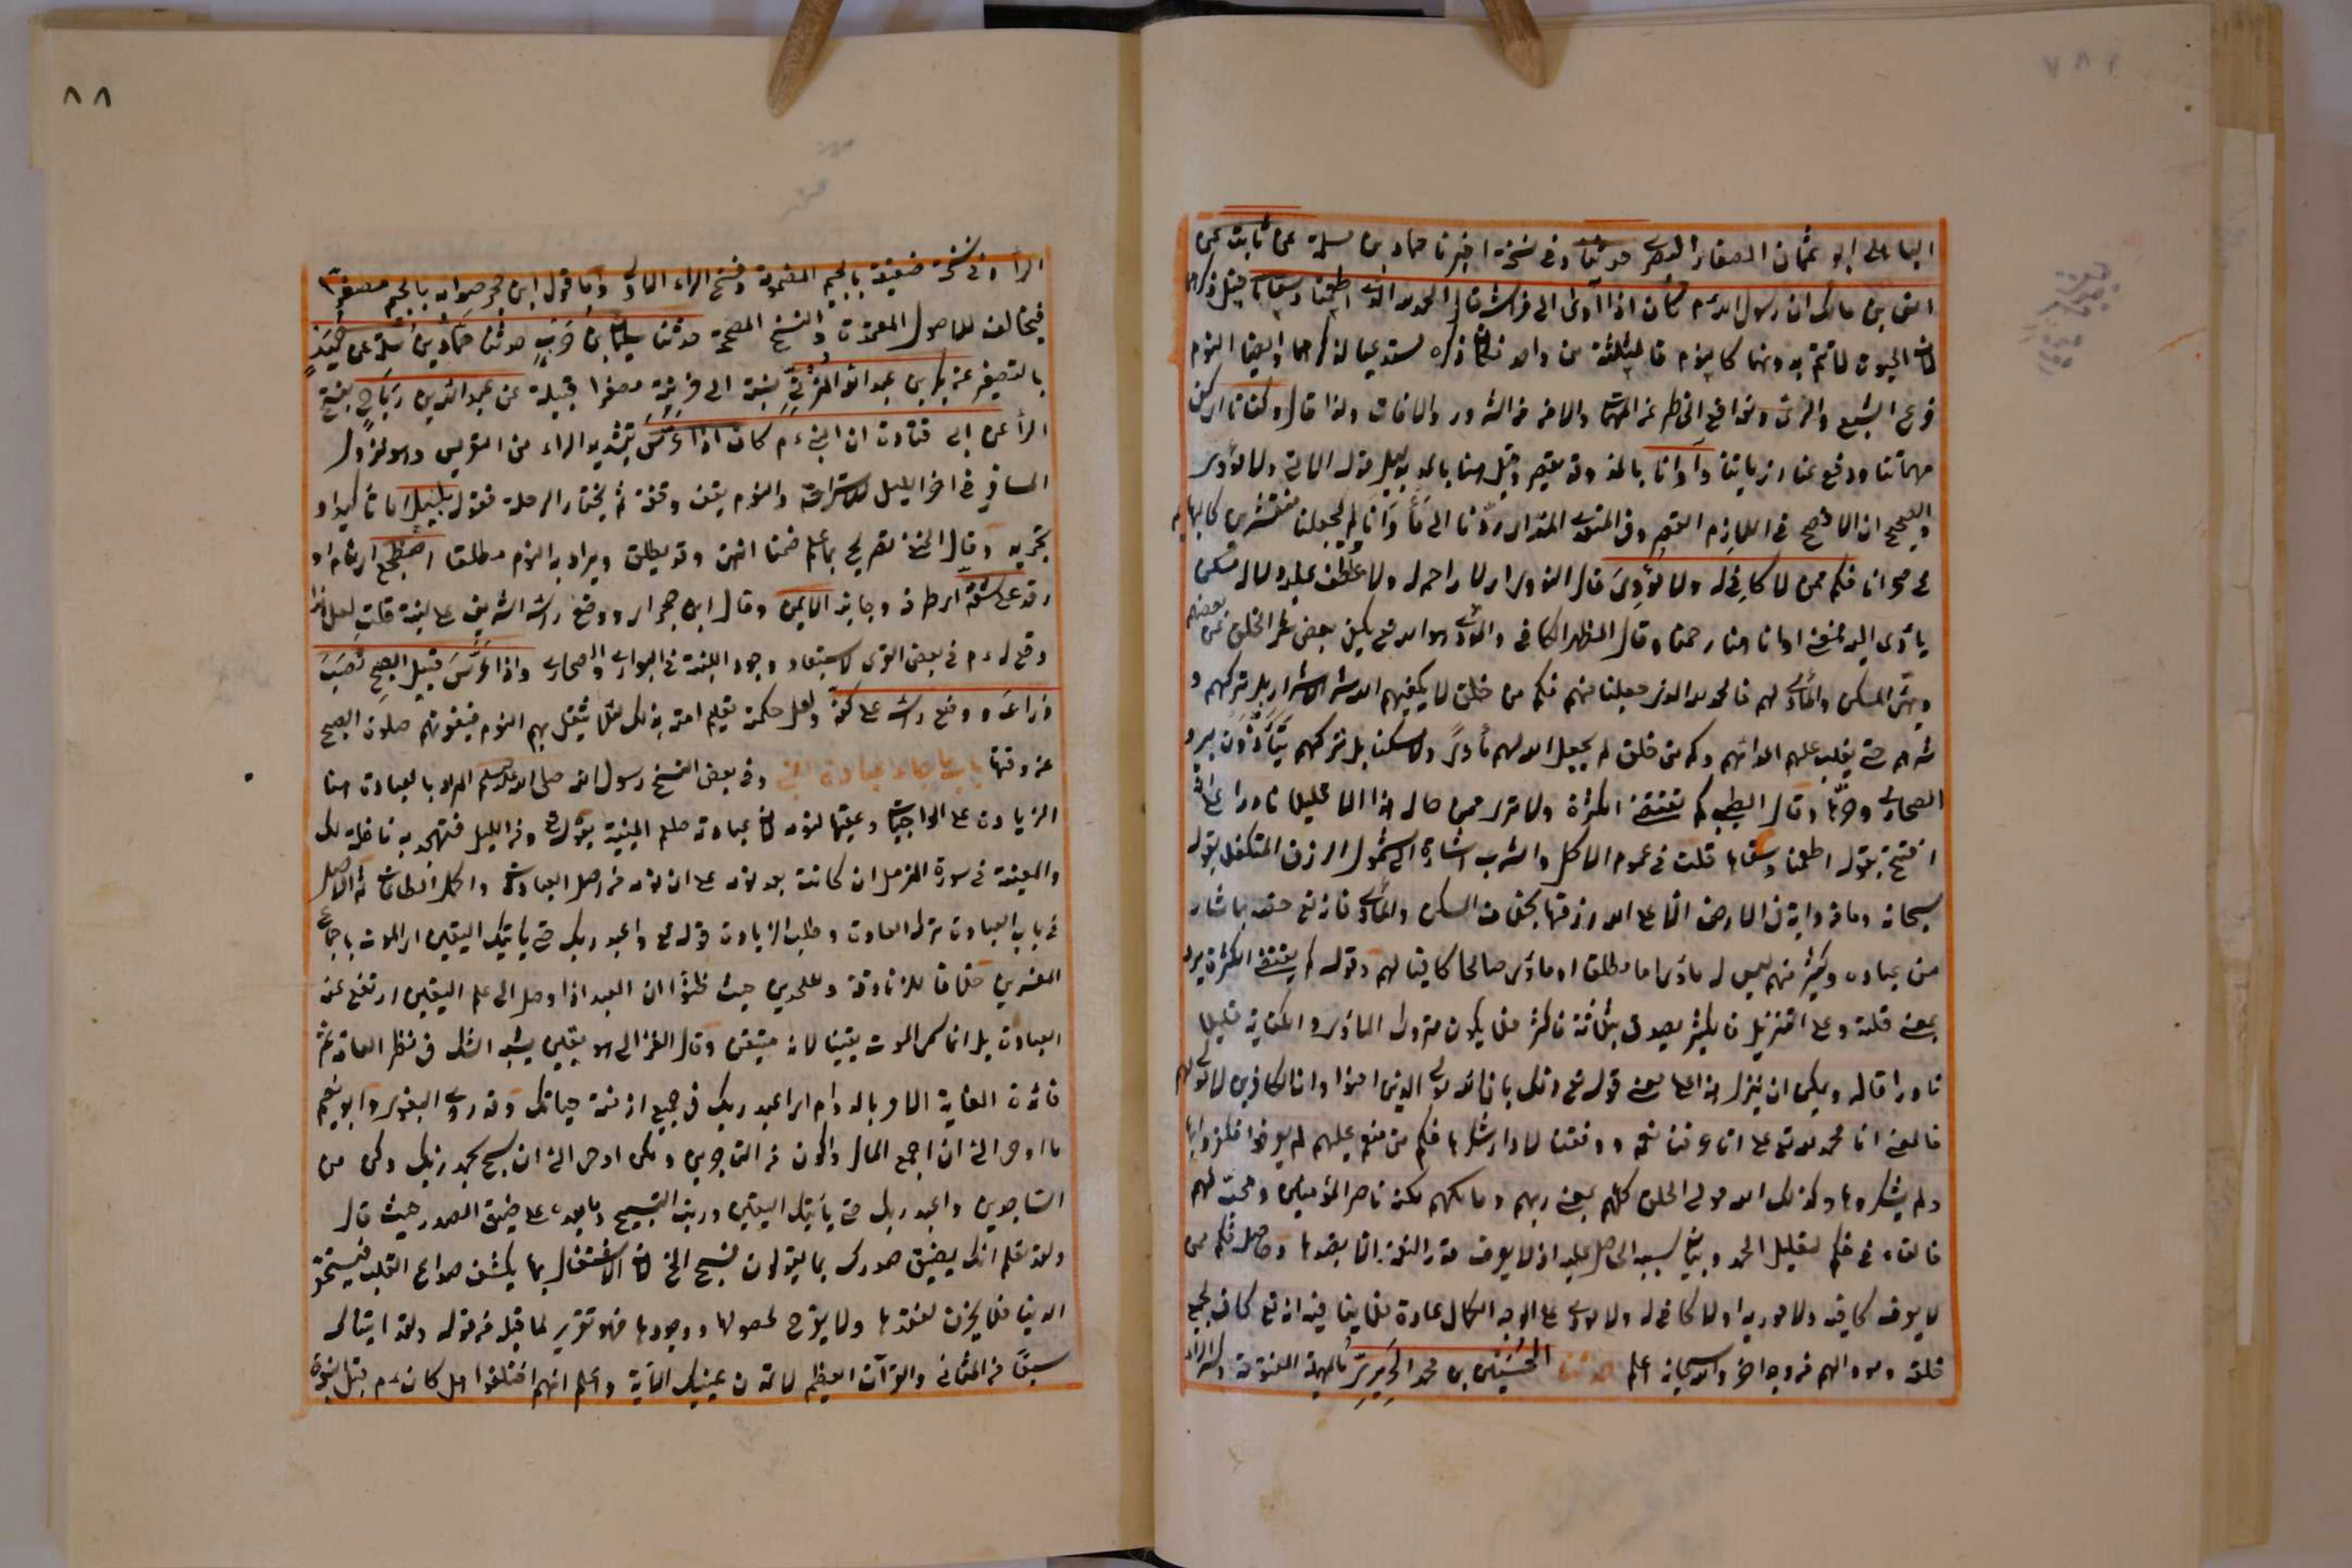 الباهلي ابو عثمان الصفار البصري حدثنا وفي نسخة اخبرنا حماد بن سلمة عن ثابت عن
انس بن مالك ان رسول الله م كان اذا اوى الى فراشه قال الحمد لله الذي اطعمنا وسقانا قيل ذكرهما
لان الحيوة لا تتم به ونهما كالنوم فالثلثة من واحد فكان ذكره مستدعيا لذكرهما وايضا النوم
فرع الشبع والري وفراغ الخاطر عن المهمات والامن من الشرور والافات ولذا قال وكفانا اي كفى
مهماتنا ودفع عنا اذياتنا وآوانا بالمد وقد يقصر وقيل هنا بالمد بدليل قوله الاتي ولا مؤوي
والصحيح ان الافصح في اللازم القصر وفي المتعدي المد اي ردنا الى مأوانا ولم يجعلنا منتشرين كالبهائم
في صحرانا فكم ممن لا كافي له ولا مؤوي قال النووي اي لا راحم له ولا عاطف عليه ولا له مسكن
يأوي اليه فمعنى اوانا هنا رحمنا وقال المظهر الكافي والمؤوي هو الله تع يكفي بعض الخلق شر بعضهم
ويهيئ المسكن والمأوى لهم فالحمد لله الذي جعلنا منهم فكم من خلق لا يكفيهم الله شر الاشرار بل تركهم و
شرهم حتى يغلب عليهم اعداؤهم وكم من خلق لم يجعل الله لهم مأوى ولا مسكنا بل تركهم يتأذون ببرد
الصحاري وحرها وقال الطيبي كم تقتضي الكثرة ولا ترى ممن حاله هذا الا قليلا نادرا على انه
افتتح بقوله اطعمنا وسقانا قلت في عموم الاكل والشرب اشارة الى شمول الرزق المتكفل بقوله
سبحانه وما من دابة في الارض الا على الله رزقها بخلاف المسكن والمأوى فانه تع خصه بما شاء
من عباده وكثير منهم ليس له مأوى اما مطلقا او مأوى صالحا كافيا لهم وقوله كم يقتضي الكثرة يرد
بمعنى قلة وعلى التنزيل فالكثير يصدق بثلاثة فاكثر فلا يكون متروك المأوى والكفاية قليلا
نادرا قاله ويمكن ان ينزل هذا على معنى قوله تع ذلك بان الله مولى الذين امنوا وان الكافرين لا مولى لهم
فالمعنى انا نحمد الله تع على ان عرفنا نعمه ووفقنا لاداء شكرها فكم من منعم عليهم لم يعرفوا فكفروا بها
ولم يشكروها وكذلك الله مولى الخلق كلهم بمعنى ربهم ومالكهم لكنه ناصر المؤمنين ومحب لهم
فالفاء في فكم لتعليل الحمد وبيان سببه الحاصل عليه اذ لا يعرف قدر النعمة الا بضدها وحاصله فكم ممن
لا يعرف كافيه ولا مؤويه او لا كافي له ولا مؤوي على الوجه الاكمل عادة فلا ينافيه انه تع كاف لجميع
خلقه ومؤو لهم من وجه اخر والله سبحانه اعلم حدثنا الحسين بن محمد الحريري بالمهملة المفتوحة وكسر الراء
٨٨
الراء وفي نسخة ضعيفة بالجيم المضمومة وفتح الراء الاولى واما قول ابن حجر صوابه بالجيم مصغرا
فيخالف للاصول المعتمدة والنسخ المصححة حدثنا سليمان بن حرب حدثنا حماد بن سلمة عن حميد
بالتصغير عن بكر بن عبد الله المزني نسبة الى مزينة مصغرا قبيلة عن عبد الله بن رباح بفتح
الراء عن ابي قتادة ان النبي م كان اذا عرس بتشديد الراء من التعريس وهو نزول
المسافر في اخر الليل للاستراحة والنوم يقف وقفة ثم يختار الرحلة فقوله بليل اما تأكيد او
تجريد وقال الحنفي تصريح بما علم ضمنا انتهى وقد يطلق ويراد به النوم مطلقا اضطجع اي نام او
رقد على شقه اي طرفه وجانبه الايمن وقال ابن حجر اي ووضع رأسه الشريف على لبنة قلت لعل هذا
وقع له م في بعض القرى لاستبعاد وجود اللبنة في البوادي والصحاري واذا عرس قبيل الصبح نصب
ذراعه ووضع رأسه على كفه ولعل حكمته تعليم امته بذلك لئلا يثقل بهم النوم فيفوتهم صلوة الصبح
عن وقتها باب ما جاء في عبادة النبي وفي بعض النسخ رسول الله صلى الله عليه وسلم المراد بالعبادة هنا
الزيادة على الواجبات وعقبها لنومه لان عبادته صلعم المبنية بقوله ومن الليل فتهجد به نافلة لك
والمعينة في سورة المزمل ان كانت بعد نومه على ان نومه من اصل العبادة واكمل الطاعات ثم الاصل
في باب العبادة ترك العادة وطلب الزيادة قوله تع واعبد ربك حتى يأتيك اليقين اي الموت باجماع
المفسرين خلافا للزنادقة والملحدين حيث ظنوا ان العبد اذا وصل الى علم اليقين ارتفع عنه
العبادة بل انما سمي الموت يقينا لانه متيقن وقال الغزالي هو يقين يشبه الشك في نظر العامة ثم
فائدة الغاية الامر بالدوام اي اعبد ربك في جميع ازمنة حياتك وقد روى البغوي وابو نعيم
ما اوحي الي ان اجمع المال واكون من التاجرين ولكن اوحي الي ان سبح بحمد ربك وكن من
الساجدين واعبد ربك حتى يأتيك اليقين ورتب التسبيح وما بعده على ضيق الصدر حيث قال
ولقد نعلم انك يضيق صدرك بما يقولون فسبح الخ لان الاشتغال بها يكشف صداء القلب فيستحقر
الدنيا فلا يحزن لفقدها ولا يفرح لحصولها ووجودها فهو تقرير لما قبله من قوله ولقد اتيناك
سبعا من المثاني والقرآن العظيم لا تمدن عينيك الاية واعلم انهم اختلفوا هل كان م قبل النبوة